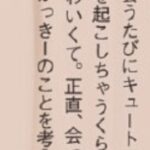 会うたびにキュート
を起こしちゃうくら
わいくて。正直、会
がっきーのことを考